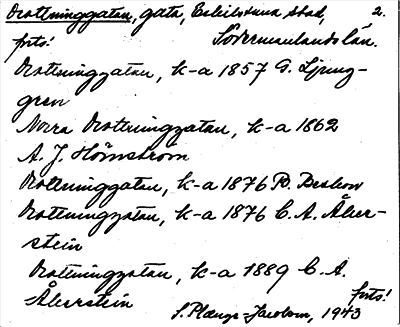 Drottninggatan, gata, Eskilstuna stad, 2.
forts! Södermanlands län.
Drottninggatan, k-a 1857 G. Ljung-
gren
Norra Drottninggatan, k-a 1862
A. J. Hörnström
Drottninggatan, k-a 1876 R. Beskow
Drottninggatan, k-a 1876 C. A. Åker-
stein
Drottninggatan, k-a 1889 C. A.
Åkerstein forts!
S. Plænge-Jacobson, 1943